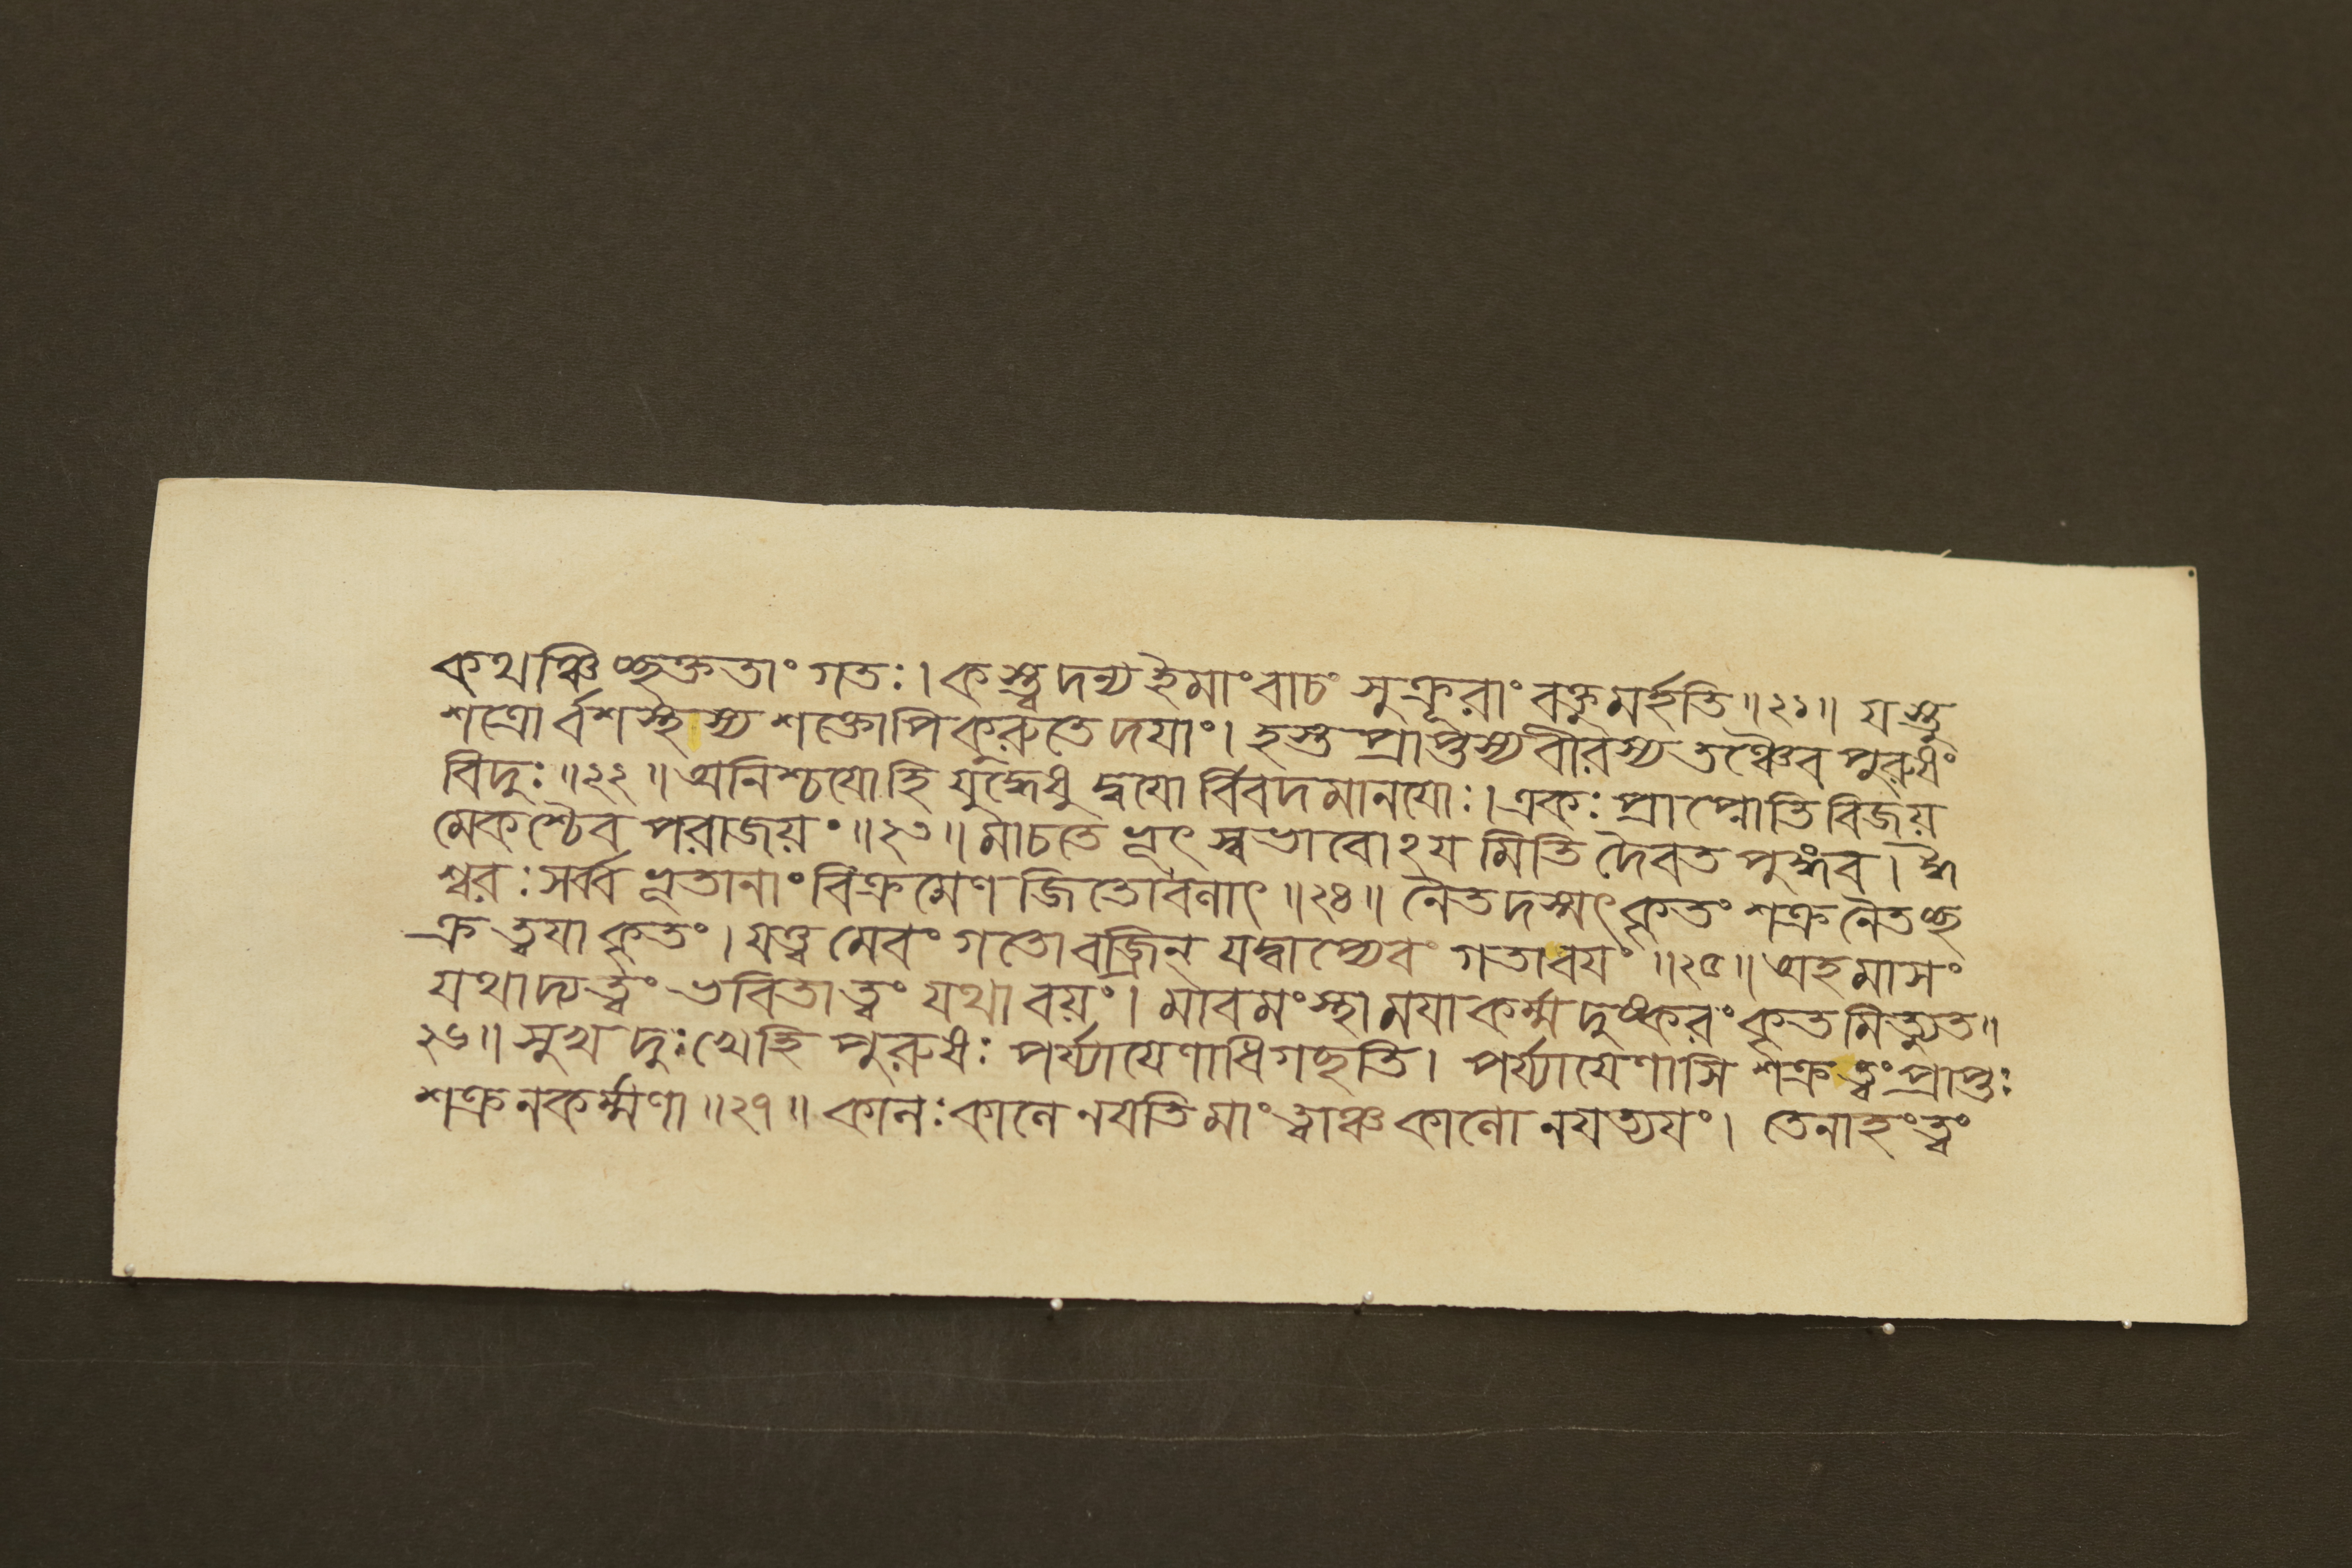 কথঞ্চিচ্ছক্ততাং গতঃ। কস্ত্বদন্য ইমাং বাচং সুক্রূরাং বক্তুমর্হতি॥২১॥ যস্তু
শত্রোর্বশস্থস্য শক্তোপি কুরুতে দযাং। হস্তপ্রাপ্তস্য বীরস্য তঞ্চৈব পুরুষং
বিদুঃ॥২২॥ অনিশ্চযো হি যুদ্ধেষু দ্বযোর্বিবদমানযোঃ। একঃ প্রাপ্নোতি বিজয়
মেকশ্চৈব পরাজয়ং॥২৩॥ মাচতে ভূৎ স্বভাবোঽয মিতি দৈবতপুঙ্গব। ঈ
শ্বরঃ সর্ব্বভূতানাং বিক্রমেণ জিতোবলাৎ॥২৪॥ নৈতদস্মৎকৃতং শক্র নৈতচ্ছ
ক্র ত্বযা কৃতং। যত্ত্বমেবং গতো বজ্রিন্ যদ্বাপ্যেবং গতাবযং॥২৫॥ অহমাসং
যথাদ্যত্বং ভবিতা ত্বং যথা বয়ং। মাবমংস্থা মযা কর্ম্ম দুষ্করং কৃতমিত্যুত॥
২৬॥ সুখদুঃখেহি পুরুষঃ পর্য্যাযেণাধিগচ্ছতি। পর্য্যাযেণাসি শক্রত্বং প্রাপ্তঃ
শক্র নকর্ম্মণা॥২৭॥ কালঃ কালে নযতি মাং ত্বাঞ্চ কালো নযত্যযং। তেনাহং ত্বং